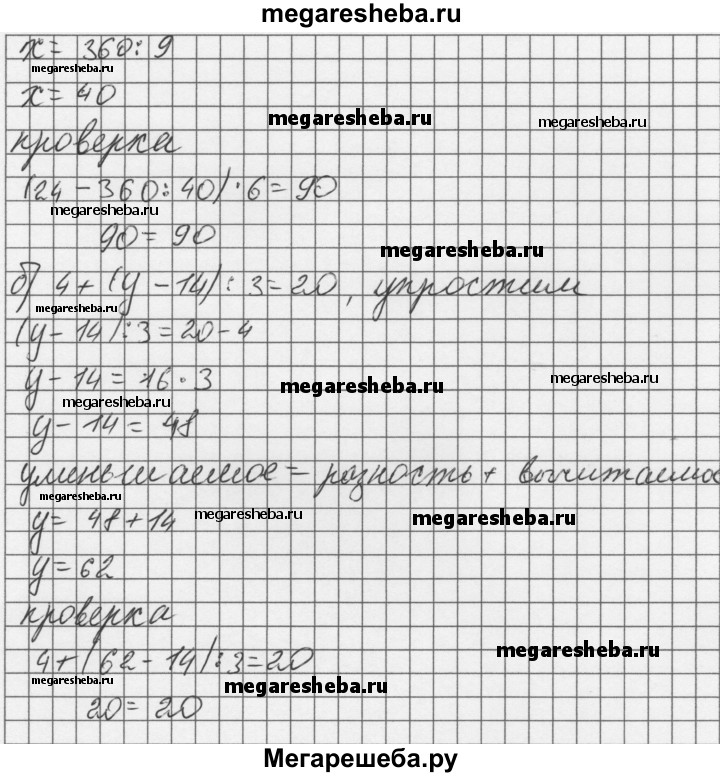 megaresheba.ru
x = 360 : 9
megaresheba.ru
x = 40
megaresheba.ru
megaresheba.ru
проверка
(24 - 360 : 40) · 6 = 90
megaresheba.ru
90 = 90
megaresheba.ru
б) 4 + (y - 14) : 3 = 20, упростим
megaresheba.ru
(y - 14) : 3 = 20 - 4
y - 14 = 16 · 3
megaresheba.ru
megaresheba.ru
megaresheba.ru
y - 14 = 48
уменьшаемое = разность + вычитаемое
megaresheba.ru
y = 48 + 14
megaresheba.ru
megaresheba.ru
y = 62
проверка
4 + (62 - 14) : 3 = 20
megaresheba.ru
megaresheba.ru
megaresheba.ru
20 = 20
Мегарешеба.ру